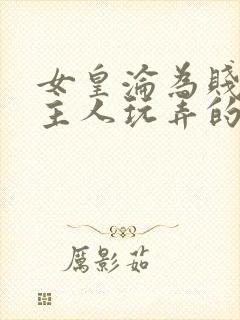 女皇淪為賤
主人玩弄的
厲影茹